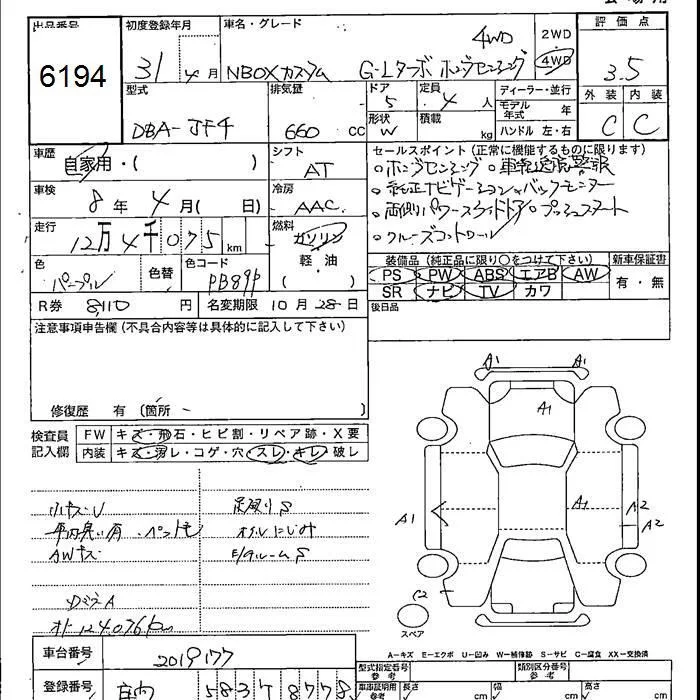 出品番号
6194
初度登録年月
31 4 月
車名・グレード
NBOXカスタム G-Lターボ ホンダセンシング
4WD
2WD
4WD
評価点
3.5
外装 内装
C C
型式
DBA-JF4
排気量
660 cc
ドア
5
定員
4 人
形状
W
積載
kg
ディーラー・並行
モデル年式 年
ハンドル 左・右
車歴
自家用・( )
シフト
AT
車検
8 年 4 月( 日)
冷房
AAC
走行
12万4千075 km
燃料
ガソリン
軽・油
( )
色
パープル
色替
色コード
PB89P
R券 8,110 円
名変期限 10 月 28 日
セールスポイント(正常に機能するものに限ります)
○ホンダセンシング ○車線逸脱警報
○純正ナビゲーション バックモニター
○両側パワースライドドア ○プッシュスタート
○クルーズコントロール
装備品(純正品に限り○をつけて下さい)
新車保証書
PS PW ABS エアB AW
SR ナビ TV カワ
有・無
後日品
注意事項申告欄(不具合内容等は具体的に記入して下さい)
修復歴 有 (箇所 - )
検査員
記入欄
FW キズ・飛石・ヒビ割・リペア跡・X要
内装 キズ・汚レ・コゲ・穴・スレ・キレ・破レ
小キズU
足廻りS
オイルにじみ
AWキズ
E/GルームS
A1 A1
A1
A1 A1 A2
A2
C2
スペア
A-キズ E-エクボ U-凹み W-補修跡 S-サビ C-腐食 XX-交換済
車台番号
2019177
登録番号
5837 8778
型式指定番号
参考
類別区分番号
参考
車庫証明用
参考
長さ cm
幅 cm
高さ cm